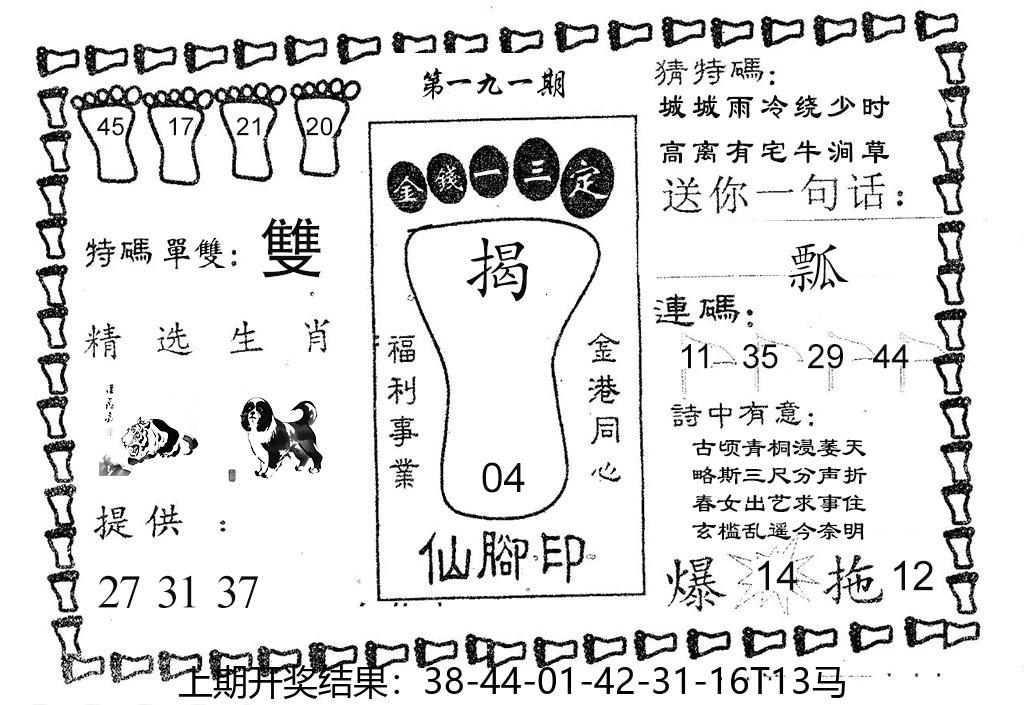 第一九一期
45 17 21 20
特碼單雙：雙
精选生肖
提供：
27 31 37
金錢一三定
揭
福利事業
金港同心
04
仙腳印
猜特碼：
城城雨冷绕少时
高离有宅牛涧草
送你一句话：
瓢
連碼：
11 35 29 44
詩中有意：
古顷青桐浸萎天
略斯三尺分声折
春女出艺求事住
玄槛乱遥今奈明
爆 14 拖 12
上期开奖结果：38-44-01-42-31-16T13马